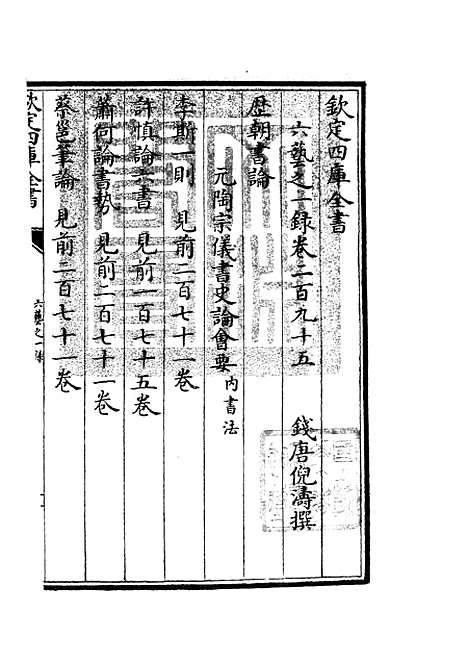 欽定四庫全書
六藝之一録卷二百九十五
錢唐倪濤撰
歴朝書論
元陶宗儀書史論會要内書法
李斯一則 見前二百七十一卷
許慎論書 見前一百七十五卷
蕭何論書勢 見前二百七十一卷
蔡邕筆論 見前二百七十一卷
欽定四庫全書
六藝之一録